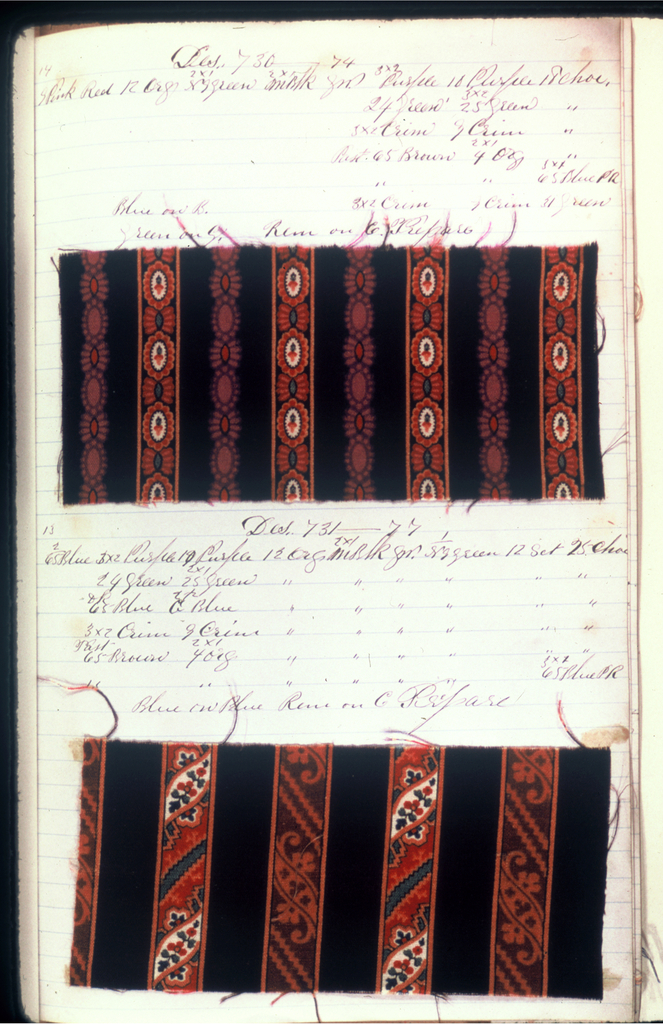 14
Des. 730 — 74
Pink Red 12 Org 2x1 green 2x1 mBlk gr 3x2 Purple 10 Purple 18 choc.
24 green 3x2 25 green "
3x2 Crim 9 Crim "
65 Brown 2x1 4 Org "
" " 3x2 65 Blue PR
Blue on B. 3x2 Crim 9 Crim 31 green
green on G. Rem on C. Prepare
13
Des. 731 — 77
65 Blue 3x2 Purple 10 Purple 12 Org 2x1 mBlk gr green 12 Set 25 Choc
24 green 2x1 25 green " " " " " "
65 Blue 6 Blue " " " " " "
3x2 Crim 9 Crim " " " " " "
65 Brown 2x1 4 Org " " " " " "
" " " " " " 3x2 65 Blue PR
Blue on Blue Rem on C Prepare